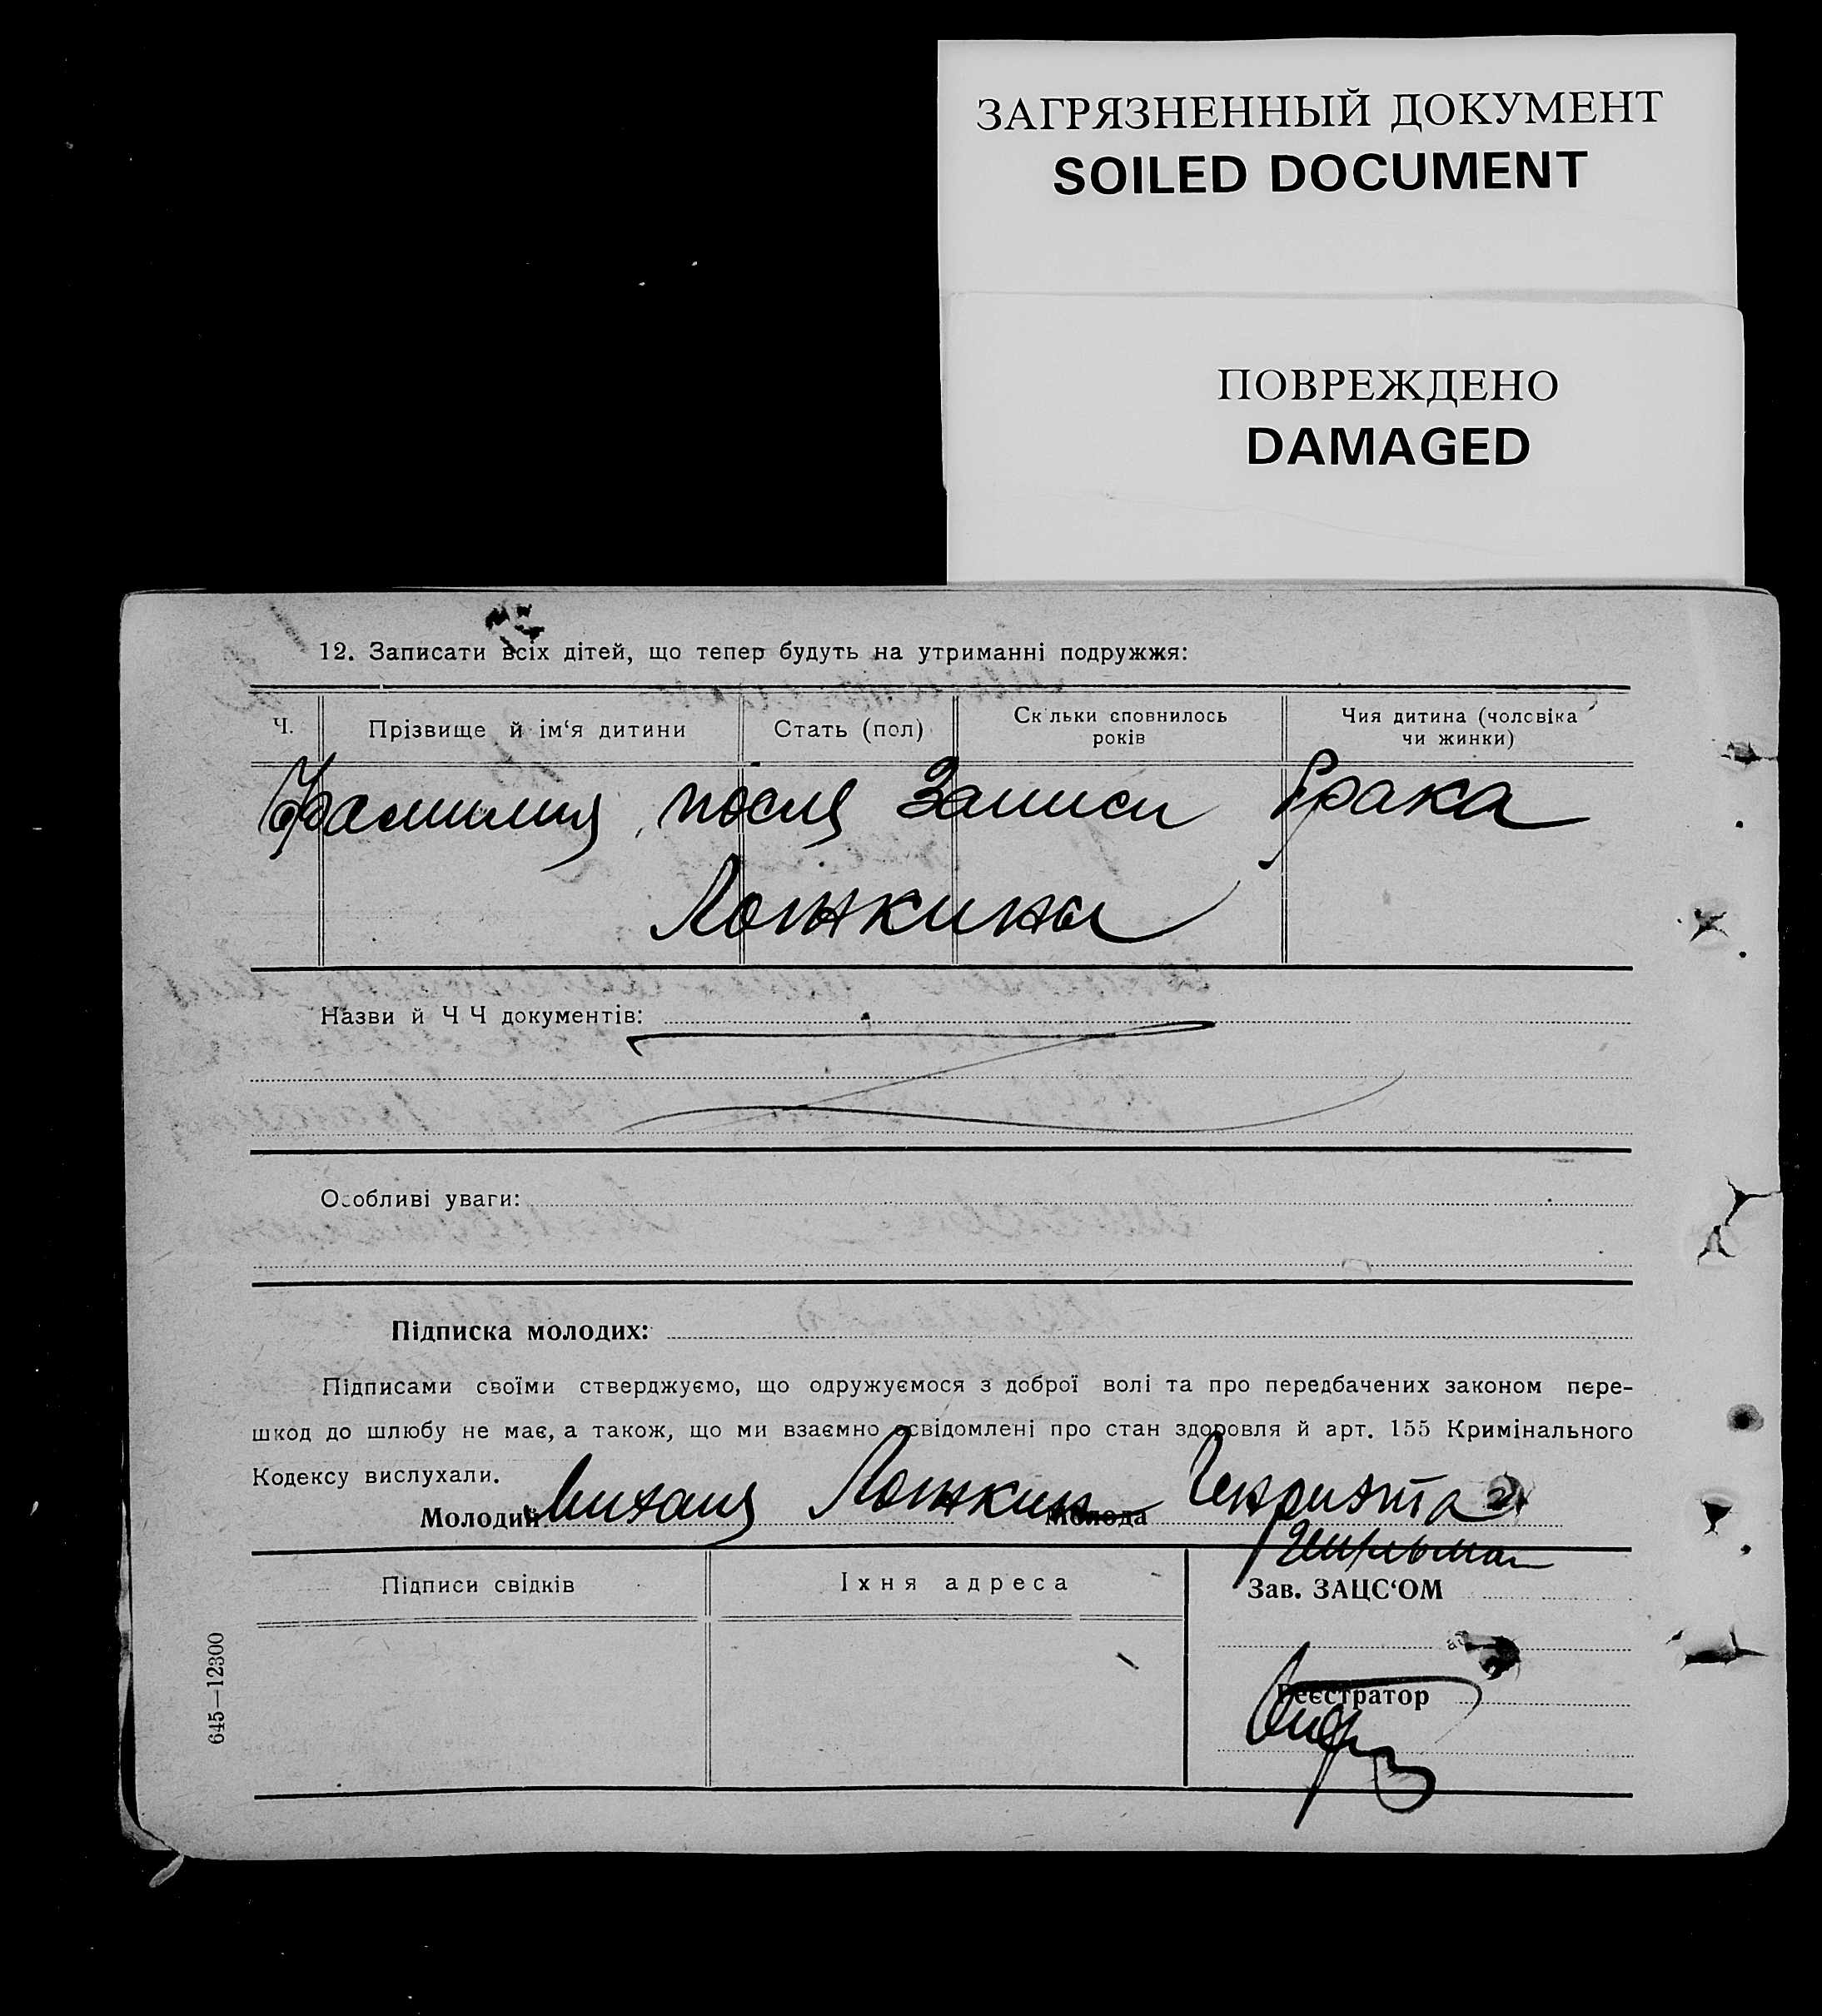 ЗАГРЯЗНЕННЫЙ ДОКУМЕНТ
SOILED DOCUMENT
ПОВРЕЖДЕНО
DAMAGED
12. Записати всіх дітей, що тепер будуть на утриманні подружжя:
Ч.
Прізвище й ім‘я дитини
Стать (пол)
Ск льки сповнилось
років
Чия дитина (чоловіка
чи жинки)
Фамилия после Записи брака
Ложкина
Назви й Ч Ч документів:
Особливі уваги:
Підписка молодих:
Підписами своїми стверджуємо, що одружуємося з доброї волі та про передбачених законом пере-
шкод до шлюбу не має, а також, що ми взаємно освідомлені про стан здоровля й арт. 155 Кримінального
Кодексу вислухали.
Молодий Михаил Ложкин Молода Генриэтта
Підписи свідків
Їхня адреса
Зав. ЗАЦС‘ОМ
Реєстратор
645—12300